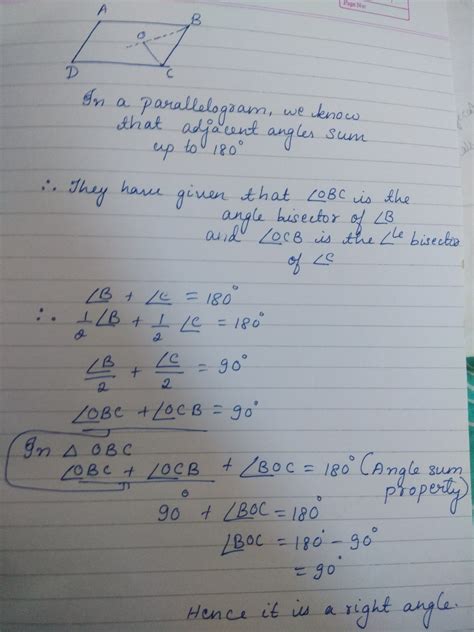 Page No:
A
B
O
D
C
In a parallelogram, we know
that adjacent angles sum
up to 180°
∴ They have given that ∠OBC is the
angle bisector of ∠B
and ∠OCB is the ∠le bisector
of ∠C
∠B + ∠C = 180°
∴ 1/2 ∠B + 1/2 ∠C = 180°
∠B/2 + ∠C/2 = 90°
∠OBC + ∠OCB = 90°
In △ OBC
∠OBC + ∠OCB + ∠BOC = 180° (Angle sum
property)
90° + ∠BOC = 180°
∠BOC = 180° - 90°
= 90°
Hence it is a right angle.